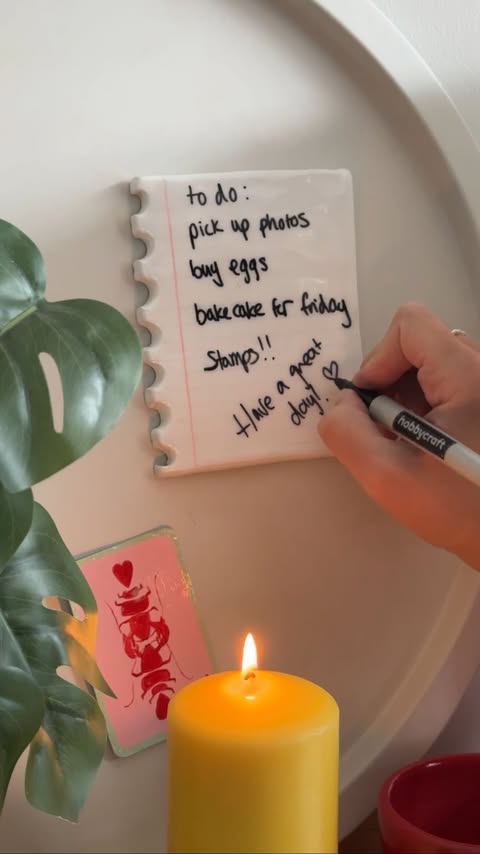 to do:
pick up photos
buy eggs
bake cake for friday
Stamps!!
Have a great
day! ♡
hobbycraft